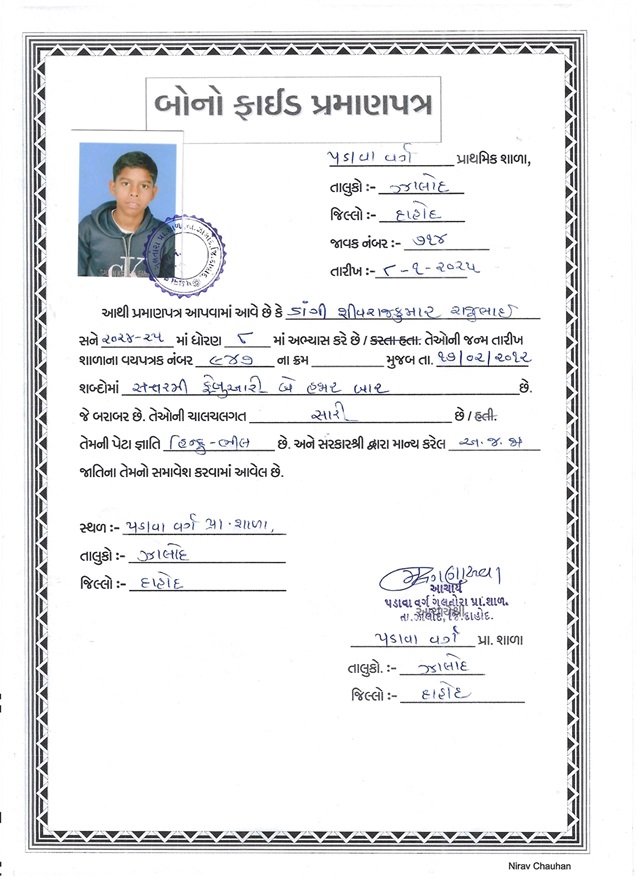 બોનો ફાઈડ પ્રમાણપત્ર
પડાવા વર્ગ પ્રાથમિક શાળા,
તાલુકો :- ઝાલોદ
જિલ્લો :- દાહોદ
જાવક નંબર :- ૭૧૪
તારીખ :- ૮-૧-૨૦૨૫
આથી પ્રમાણપત્ર આપવામાં આવે છે કે ડાંગી શીવરાજકુમાર રાજુભાઈ
સને ૨૦૨૪-૨૫ માં ધોરણ ૮ માં અભ્યાસ કરે છે / કરતા હતા. તેઓની જન્મ તારીખ
શાળાના વયપત્રક નંબર ૯૪૭ ના ક્રમ મુજબ તા. ૧૭/૦૨/૨૦૧૨
શબ્દોમાં સત્તરમી ફેબ્રુઆરી બે હજાર બાર છે.
જે બરાબર છે. તેઓની ચાલચલગત સારી છે / હતી.
તેમની પેટા જ્ઞાતિ હિન્દુ-ભીલ છે. અને સરકારશ્રી દ્વારા માન્ય કરેલ અ.જ.જા
જાતિના તેમનો સમાવેશ કરવામાં આવેલ છે.
સ્થળ :- પડાવા વર્ગ પ્રા. શાળા,
તાલુકો :- ઝાલોદ
જિલ્લો :- દાહોદ
આચાર્ય
પડાવા વર્ગ ગલતોરા પ્રા.શાળા.
આચાર્યશ્રી
તા. ઝાલોદ, જિ.દાહોદ.
પડાવા વર્ગ પ્રા. શાળા
તાલુકો. :- ઝાલોદ
જિલ્લો :- દાહોદ
Nirav Chauhan